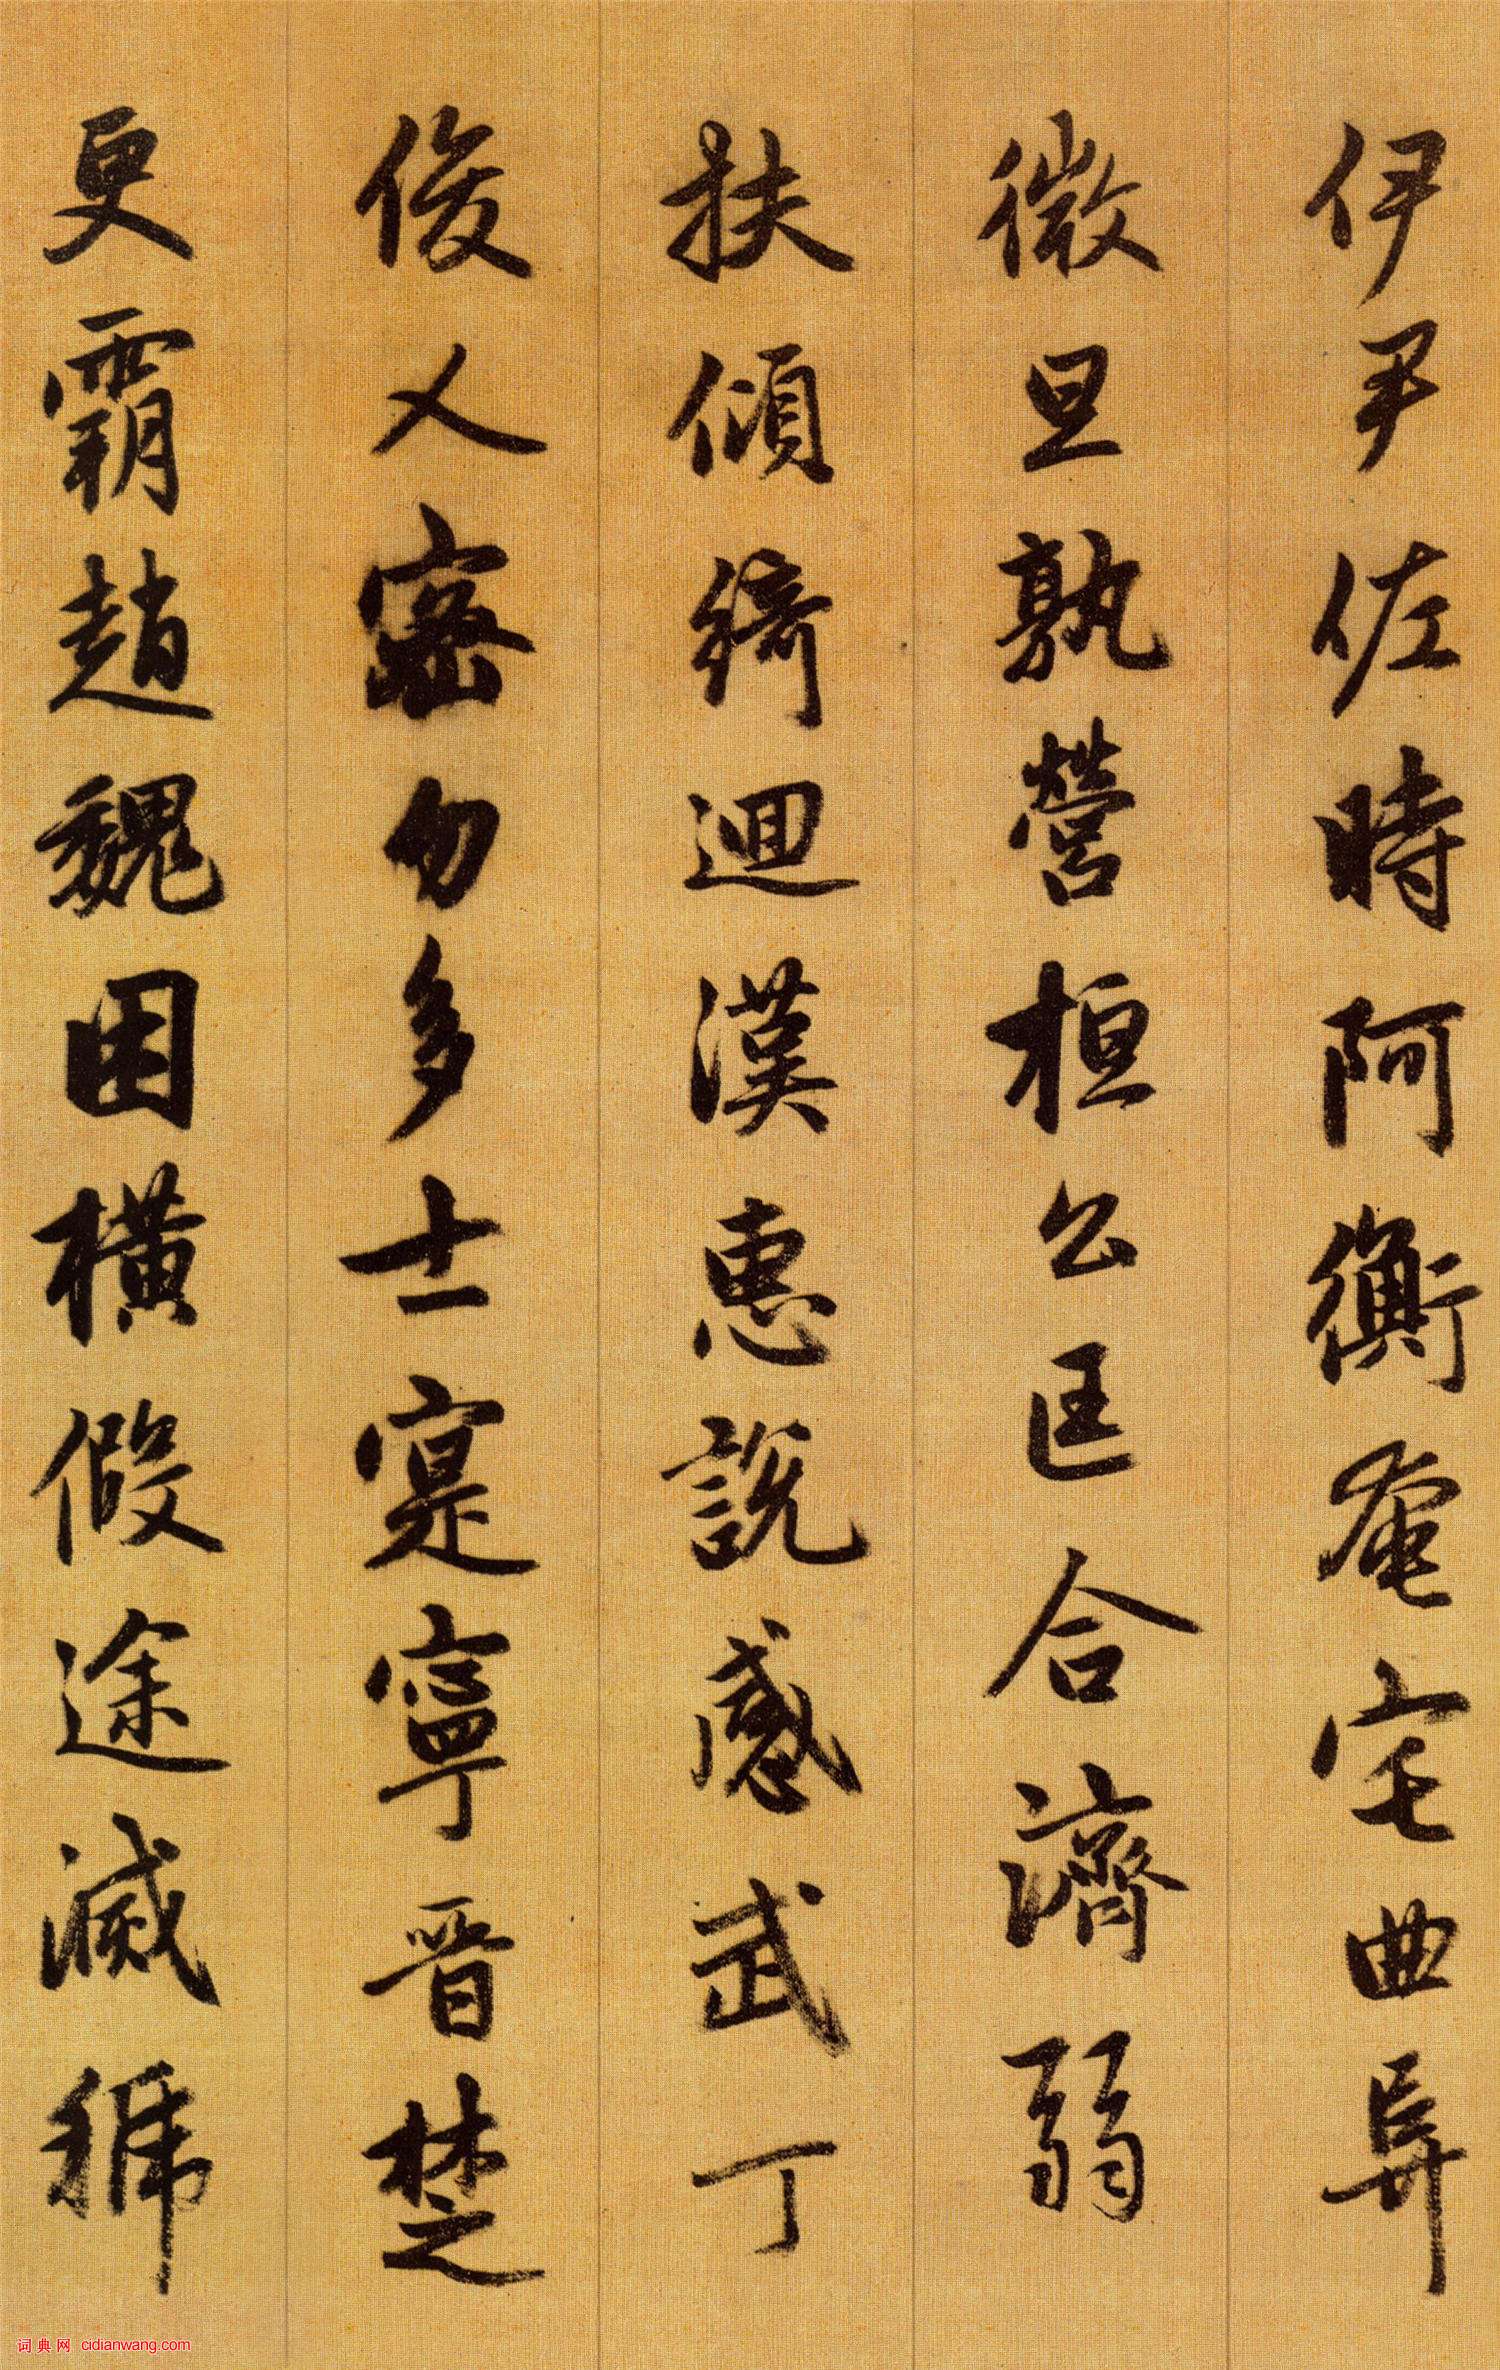 伊尹佐時阿衡奄宅曲阜
微旦孰營桓公匡合濟弱
扶傾綺迴漢惠說感武丁
俊乂密勿多士寔寧晉楚
更霸趙魏困橫假途滅虢
词典网 cidianwang.com